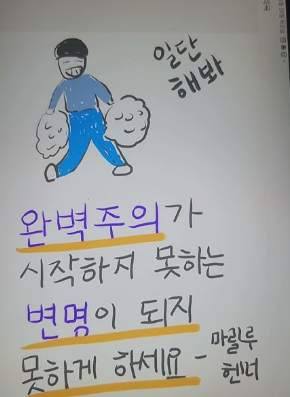 일단
해봐
완벽주의가
시작하지 못하는
변명이 되지
못하게 하세요 - 마릴루
헨너